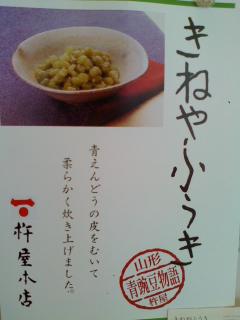 きねやふうき
青えんどうの皮をむいて
柔らかく炊き上げました。
杵屋本店
山形
青豌豆物語
杵屋